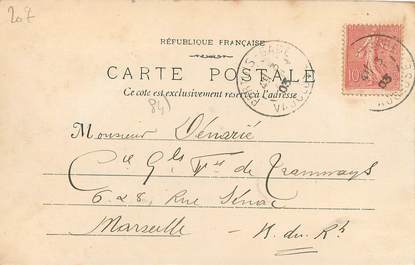 207
RÉPUBLIQUE FRANÇAISE
CARTE POSTALE
Ce côté est exclusivement réservé à l'adresse
84)
Monsieur Dénarié
Cie Gle Fse de Tramways
6 & 8, Rue Sénac
Marseille
B. du Rh
10
03
03